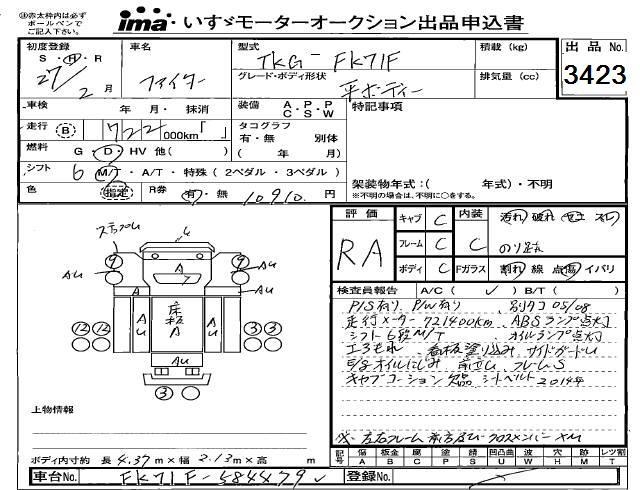 ㊟赤太枠内は必ず
ボールペンで
ご記入下さい。
ima・いすゞモーターオークション出品申込書
初度登録 車名 型式 積載 (kg) 出品 No.
S・H・R ファイター TKG-FK71F 3423
27/2月 グレード・ボディ形状 平ボディー 排気量 (cc)
車検 年 月・ 抹消 装備 A.C P.S P.W 特記事項
走行 (B) 722,000km「 」 タコグラフ
有・無 別体
燃料 G・D・HV 他( ) ( 年 月)
シフト 6 M/T・A/T・特殊 (2ペダル・3ペダル)
架装物年式:( 年式)・不明
色 指定 R券 有・無 10910円 ※不明の場合は、年式に不明に○をする。
評価 キャブ C 内装 汚れ 破れ
RA フレーム C C
ボディ C Fガラス 割れ 線 点 傷 イバリ
検査員報告 A/C( ✓ ) B/T( )
P/S有り P/W有り 別タコ 05/08
走行メーター 721400km ABSランプ点灯
シフト6段M/T オイルランプ点灯
エラもれ 看板塗り込み サイドガードU
E/gオイルにじみ フレームS
キャブコーション欠品 シートベルト2014年
A
AU AU
AU 床板A AU
AU
⑫⑫ ③③
③
上物情報
ボディ内寸約 長 4.37m×幅 2.13m×高 m
記号 傷 A 板金 B 腐 C 塗 P 錆 S 凹凸曲 U 波 W 穴 H 跡 M レツ割 T
車台No. FK71F-584479 ✓ 登録No. ( )